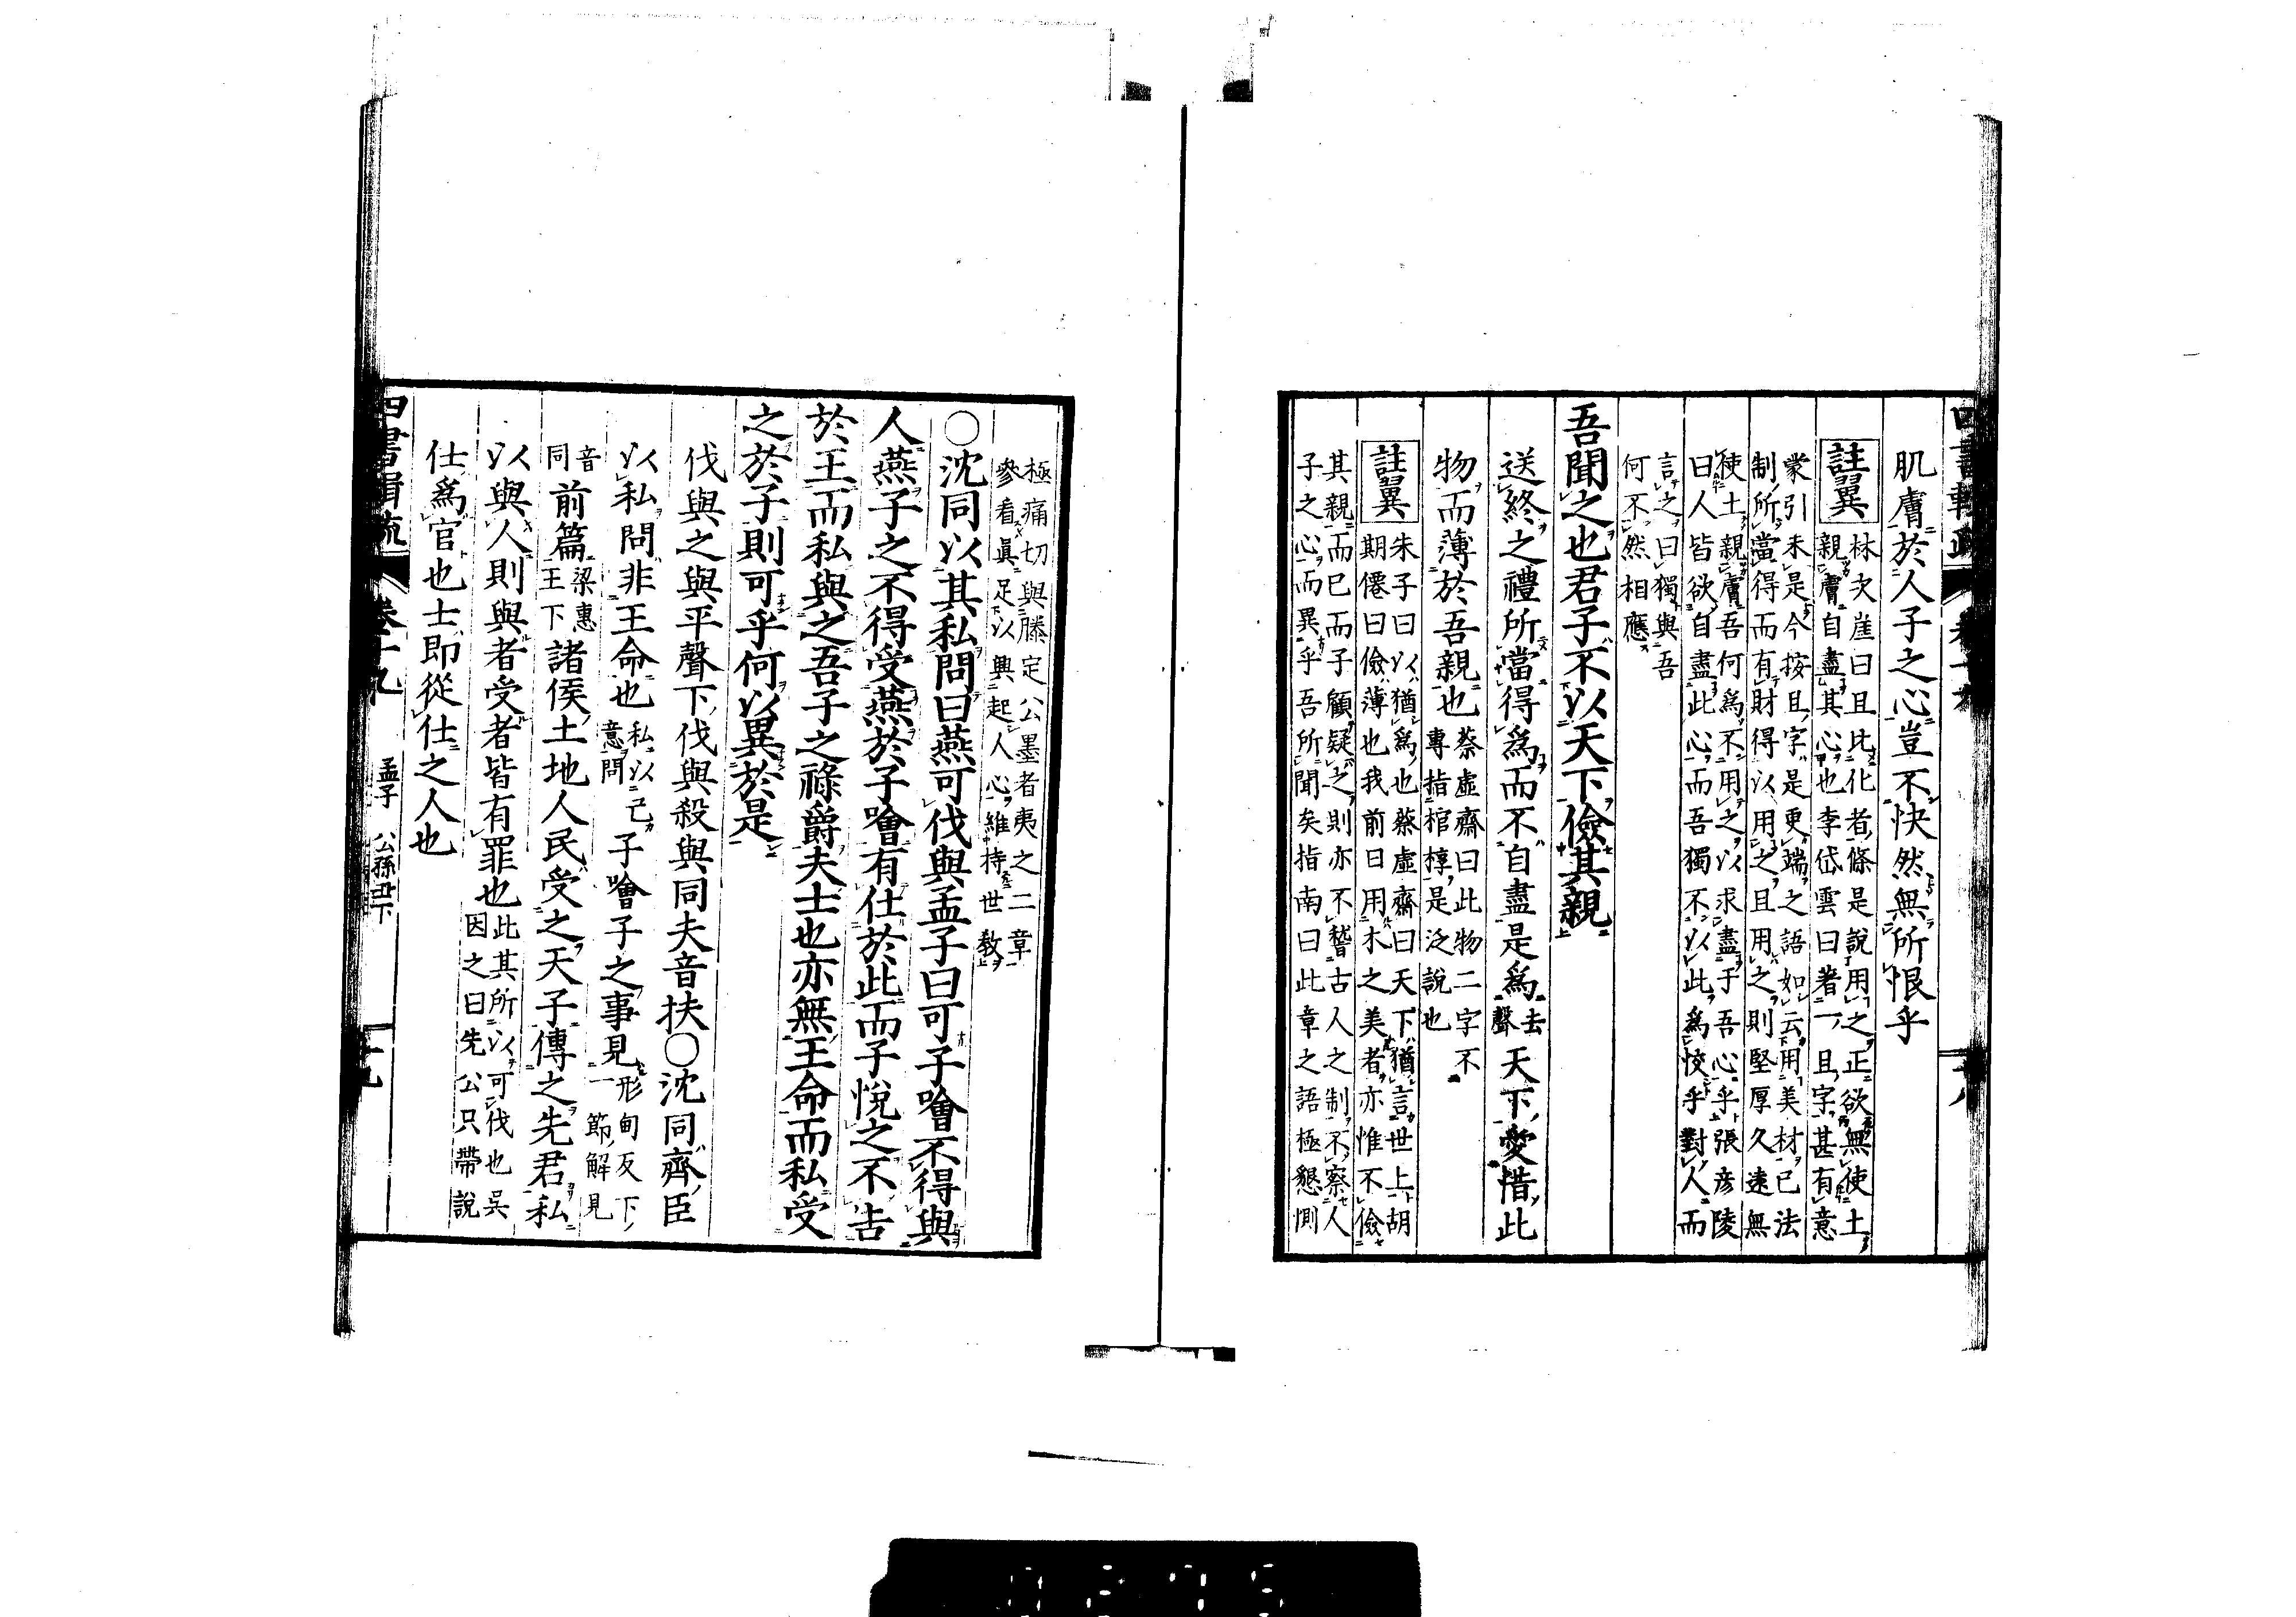 肌膚於人子之心豈不快然無所恨乎
註翼
林次崖曰且比化者條是說用之正欲無使土
親膚自盡其心也李岱雲曰著一且字甚有意
蒙引未是今按且字是更端之語如云用美材已法
制所當得而有財得以用之且用之則堅厚久遠無
使土親膚吾何爲不用之以求盡于吾心乎張彥陵
曰人皆欲自盡此心而吾獨不以此爲恔乎對人而
言之曰獨與吾
何不然相應
吾聞之也君子不以天下儉其親
送終之禮所當得爲而不自盡是爲去聲天下愛惜此
物而薄於吾親也
蔡虛齋曰此物二字不
專指棺椁是泛說也
註翼
朱子曰以猶爲也蔡虛齋曰天下猶言世上胡
期僊曰儉薄也我前日用木之美者亦惟不儉
其親而已而子顧疑之則亦不稽古人之制不察人
子之心而異乎吾所聞矣指南曰此章之語極懇惻
極痛切與滕定公墨者夷之二章
參看眞足以興起人心維持世教
○沈同以其私問曰燕可伐與孟子曰可子噲不得與
人燕子之不得受燕於子噲有仕於此而子悅之不告
於王而私與之吾子之祿爵夫士也亦無王命而私受
之於子則可乎何以異於是
伐與之與平聲下伐與殺與同夫音扶○沈同齊臣
以私問非王命也
私以己
意問
子噲子之事見
形甸反下
一節解見
音
同
前篇
梁惠
王下
諸侯土地人民受之天子傳之先君私
以與人則與者受者皆有罪也
此其所以可伐也吳
因之曰先公只帶說
仕爲官也士即從仕之人也
四書輯疏
卷十九
孟子 公孫丑下
十九